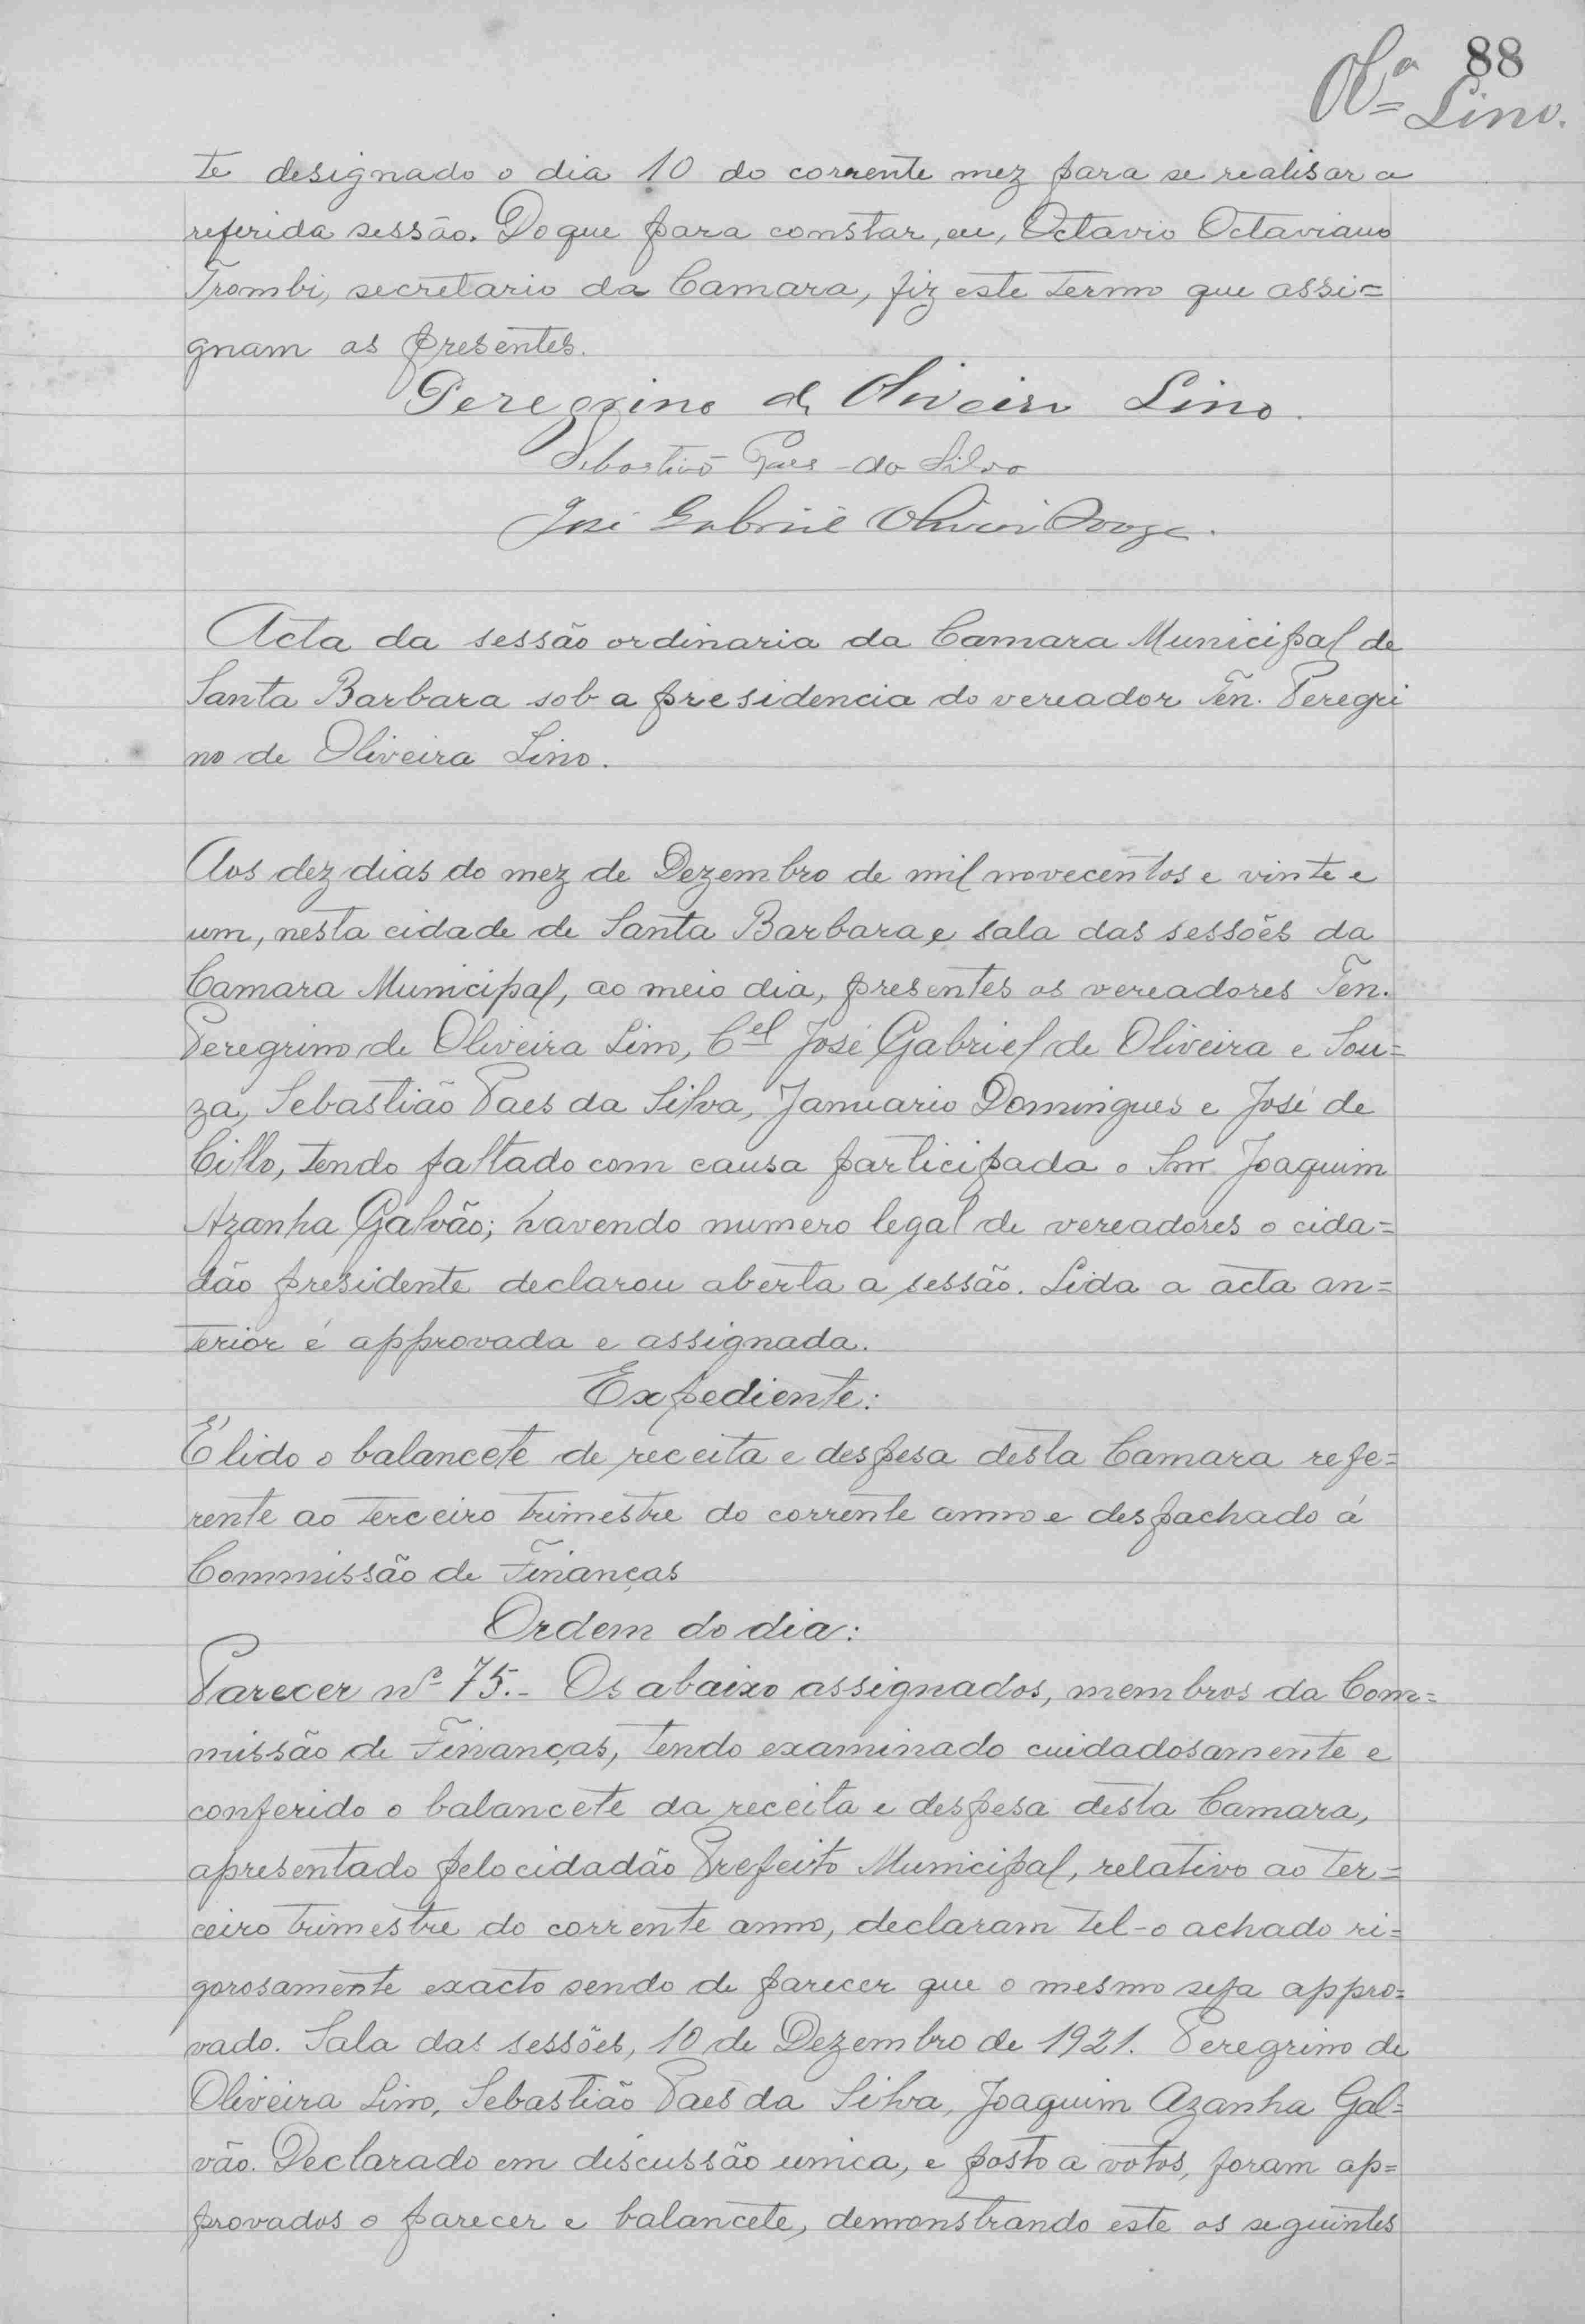 88
Olª Lino.
te designado o dia 10 do corrente mez para se realisar a
referida sessão. Do que para constar, eu, Octavio Octaviano
Trombi, secretario da Camara, fiz este termo que assi=
gnam os presentes.
Peregrino de Oliveira Lino.
Sebastião Paes da Silva
José Gabriel Oliveira Souza.
Acta da sessão ordinaria da Camara Municipal de
Santa Barbara sob a presidencia do vereador Ten. Peregri
no de Oliveira Lino.
Aos dez dias do mez de Dezembro de mil novecentos e vinte e
um, nesta cidade de Santa Barbara e sala das sessões da
Camara Municipal, ao meio dia, presentes os vereadores Ten.
Peregrino de Oliveira Lino, Cel José Gabriel de Oliveira e Sou=
za, Sebastião Paes da Silva, Januario Domingues e José de
Cillo, tendo faltado com causa participada o Snr. Joaquim
Azanha Galvão; havendo numero legal de vereadores o cida=
dão presidente declarou aberta a sessão. Lida a acta an=
terior é approvada e assignada.
Expediente:
É lido o balancete de receita e despesa desta Camara refe=
rente ao terceiro trimestre do corrente anno e despachado á
Commissão de Finanças
Ordem do dia:
Parecer nº 75.- Os abaixo assignados, membros da Com=
missão de Finanças, tendo examinado cuidadosamente e
conferido o balancete da receita e despesa desta Camara,
apresentado pelo cidadão Prefeito Municipal, relativo ao ter=
ceiro trimestre do corrente anno, declaram tel-o achado ri=
gorosamente exacto sendo de parecer que o mesmo seja appro=
vado. Sala das sessões, 10 de Dezembro de 1921. Peregrino de
Oliveira Lino, Sebastião Paes da Silva, Joaquim Azanha Gal=
vão. Declarado em discussão unica, e posto a votos, foram ap=
provados o parecer e balancete, demonstrando este os seguintes